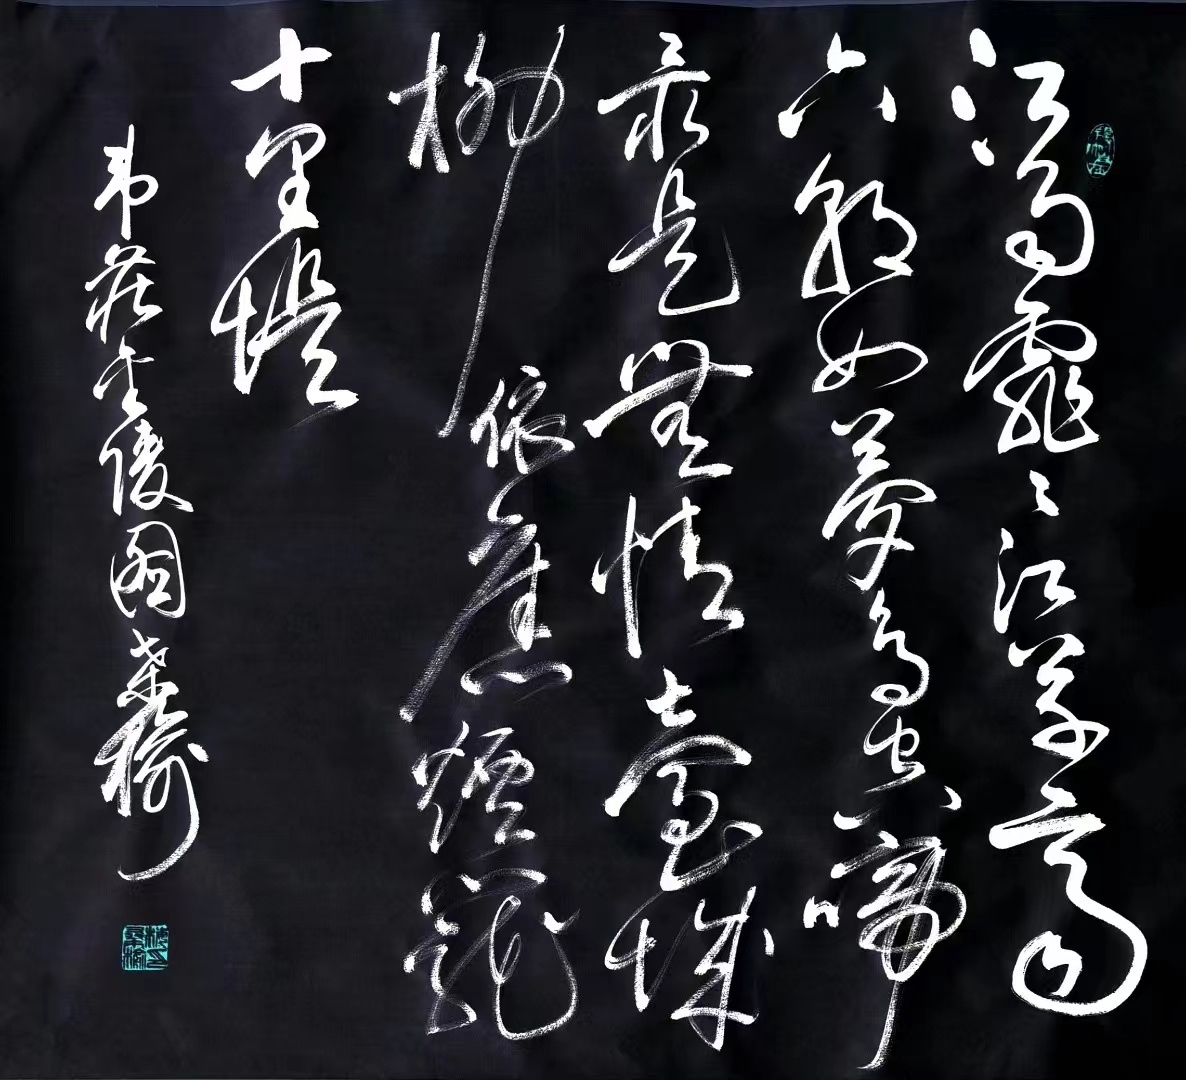 江雨霏〻江草齊
六朝如夢鳥空啼
最是無情臺城
柳依舊煙籠
十里堤
韦莊金陵圖桑榆